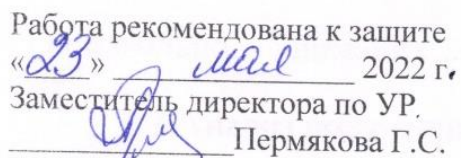 Работа рекомендована к защите
«23» мая 2022 г.
Заместитель директора по УР.
Пермякова Г.С.